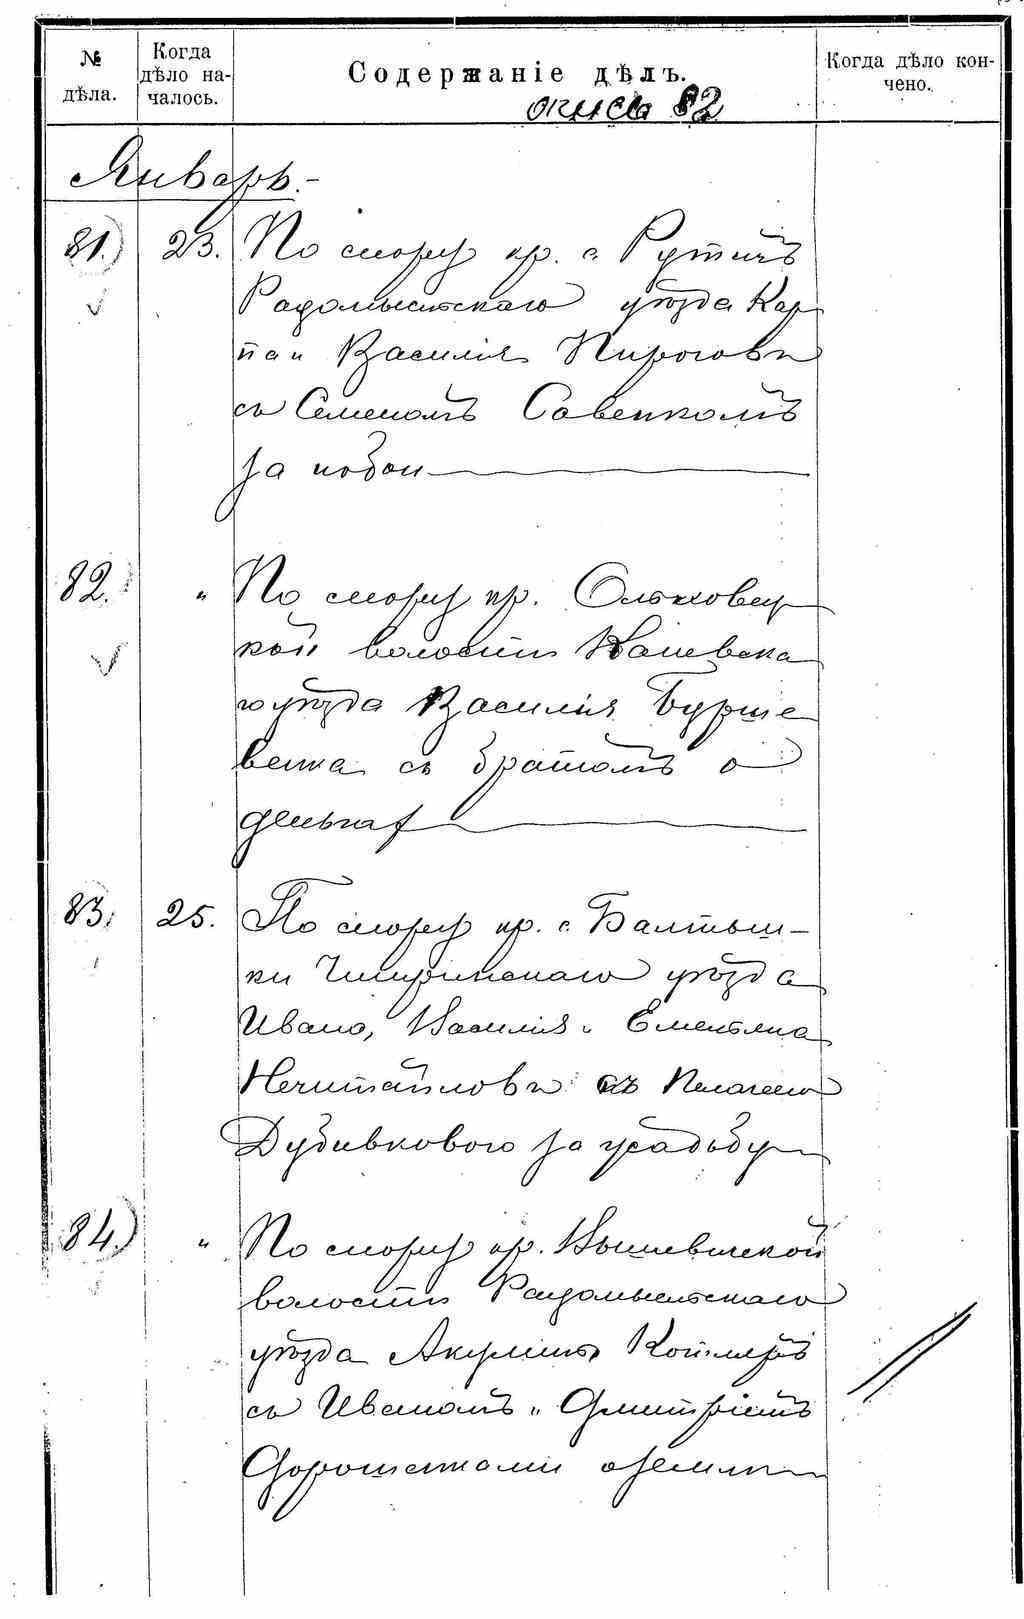 № дѣла.
Когда дѣло на-
чалось.
Содержаніе дѣлъ.
Когда дѣло кон-
чено.
опись 82
Январь.-
81. 23. По спору кр. с. Рутичъ
Радомысльскаго уѣзда Кар
па и Василія Пирогов
съ Семеномъ Савенкомъ
за побои
82. " По спору кр. Ольховец
кой волости Каневска
го уѣзда Василія Бурше
венка съ братомъ о
деньгах
83. 25. По спору кр. с. Балтыш-
ки Чигиринскаго уѣзда
Ивана, Василія и Емельяна
Нечитайловъ съ Пелагеею
Дубивковою за усадьбу
84. " По спору кр. Вышевической
волости Радомысльскаго
уѣзда Акулины Котляръ
съ Иваномъ и Дмитріемъ
Дорошенками о земли